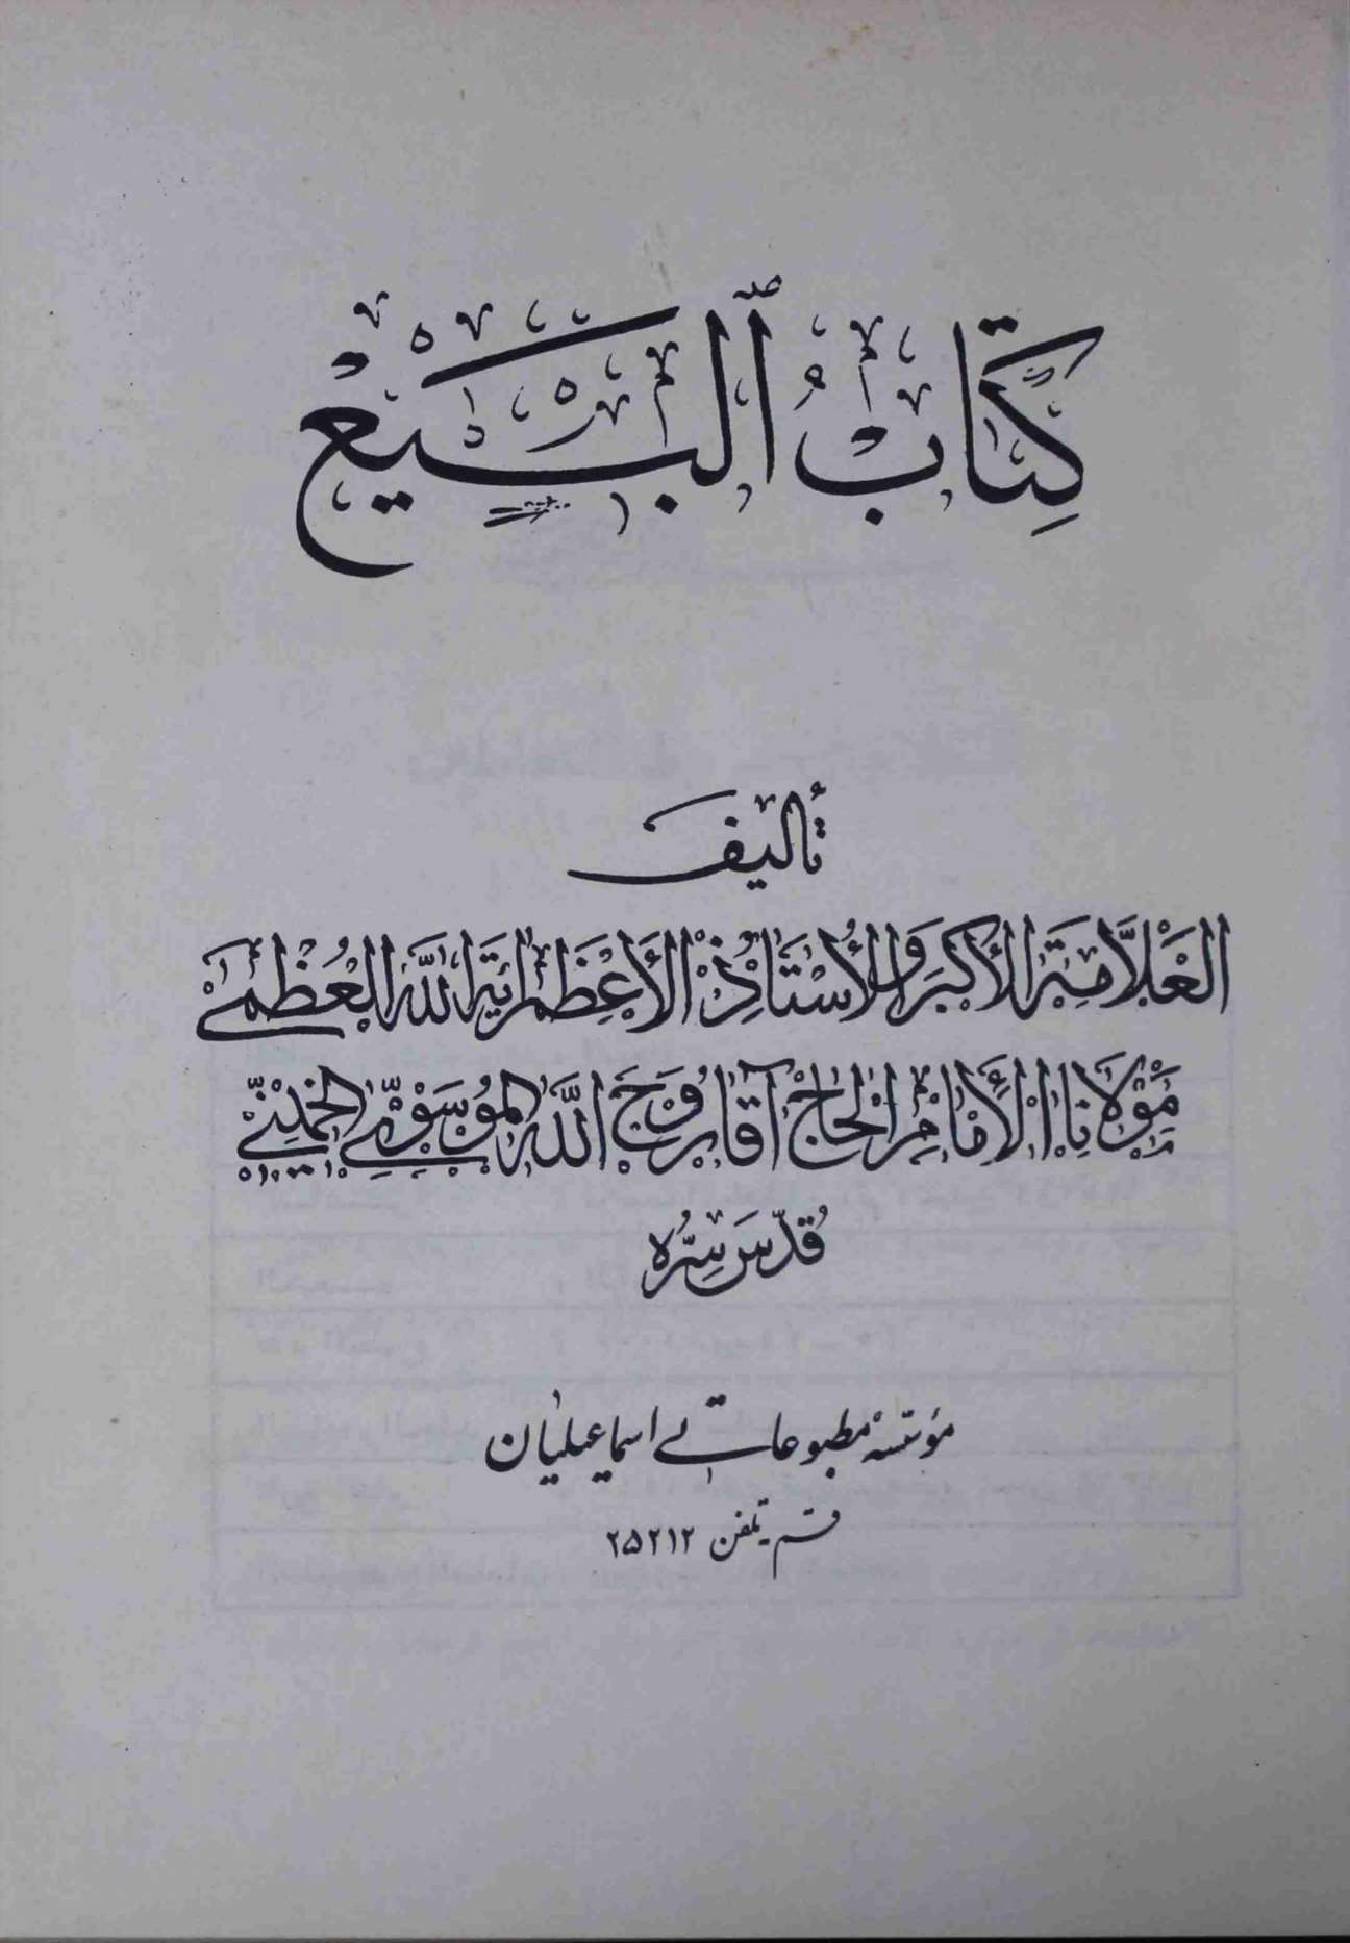 كِتَابُ ٱلبَيْعِ
تأليف
العَلاّمِةِ الأكبَر وَالأسْتَاذِ الأعظَم اية الله العُظمى
مَوْلانا الأمام الحاج آقا روح الله الموسوي الخميني
قُدّسَ سِرُّه
مؤسسه مطبوعاتی اسماعیلیان
قم - تلفن ۲۵۲۱۲